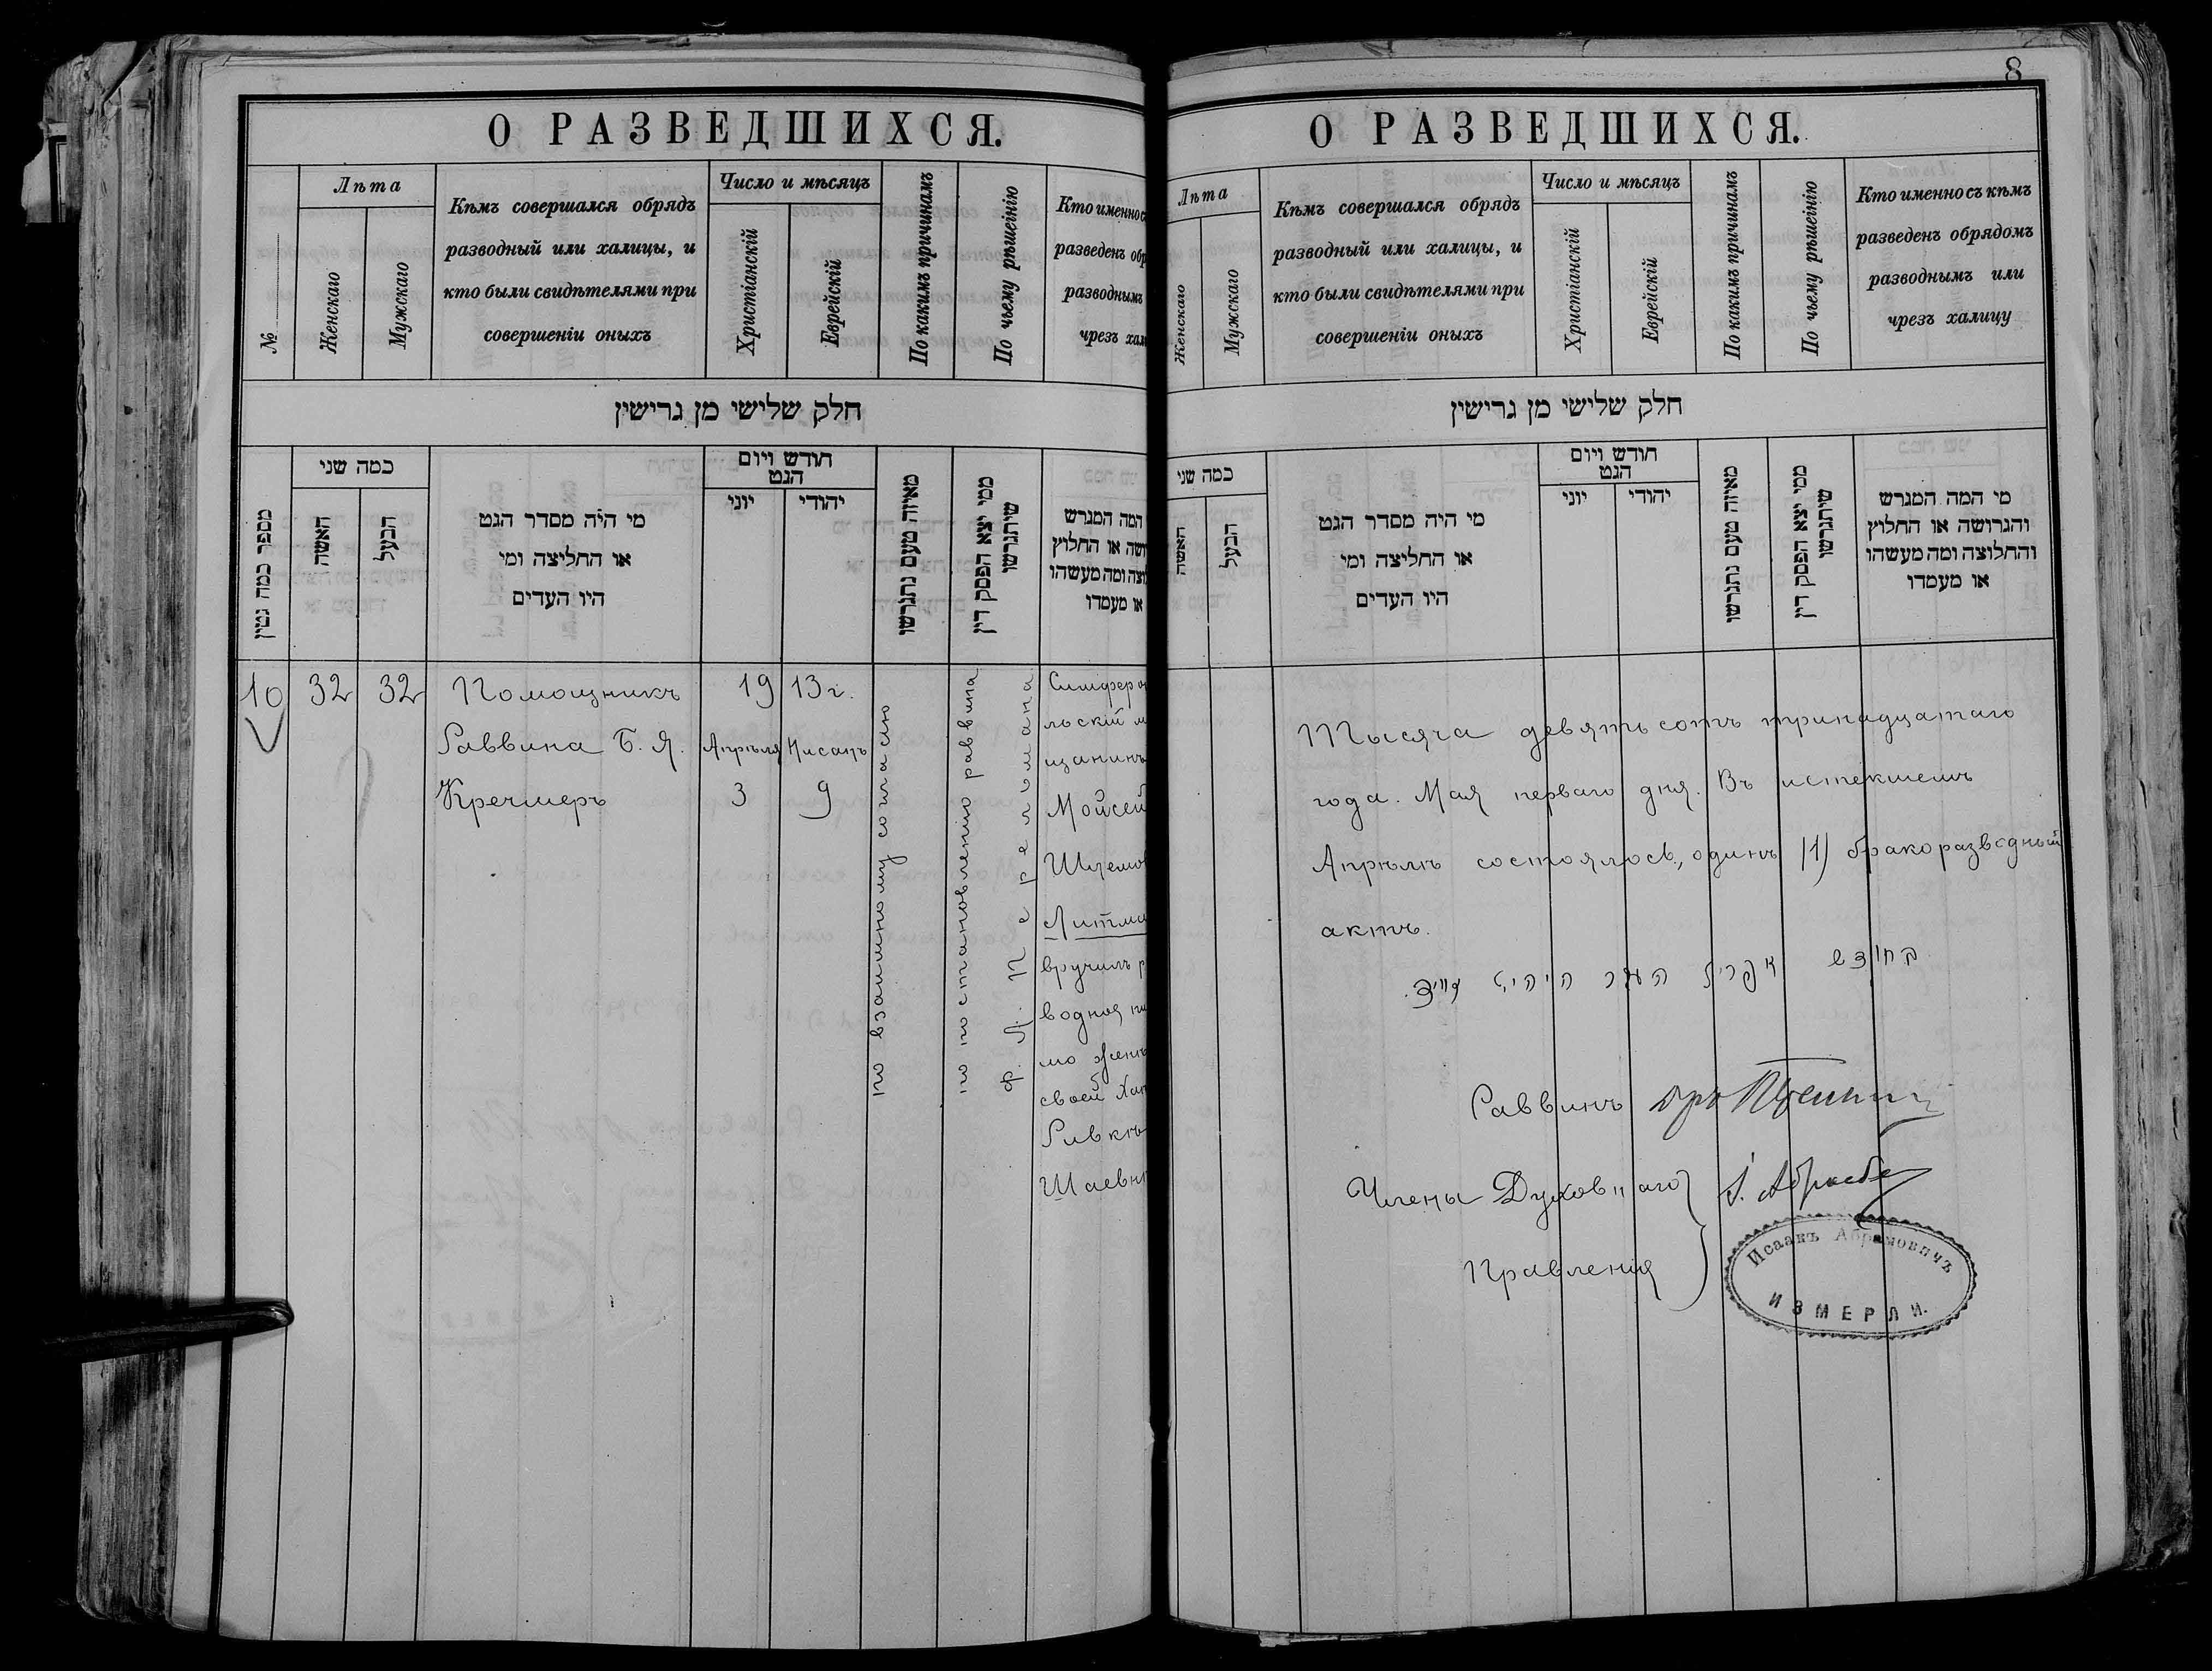 О РАЗВЕДШИХСЯ.
№
Лѣта
Женскаго
Мужскаго
Кѣмъ совершался обрядъ
разводный или халицы, и
кто были свидѣтелями при
совершеніи оныхъ
Число и мѣсяцъ
Христіанскій
Еврейскій
По какимъ причинамъ
По чьему рѣшеінію
Кто именно съ
разведенъ обр
разводнымъ
чрезъ хал
חלק שלישי מן גרישין
מספר כמה גטין
כמה שני
האשה
הבעל
מי היה מסדר הגט
או החליצה ומי
היו העדים
חודש ויום
הגט
יוני
יהודי
מאיזה טעם נתגרשו
ממי יצא הפסק דין
שיתגרשו
המה המגרש
ושה או החלוץ
וצה ומה מעשהו
או מעמדו
10
32
32
Помощникъ
Раввина Б. Я.
Кречмеръ
19 13 г.
Апрѣля Нисанъ
3 9
по взаимному согласію
по постановленію раввина
Ф. Л. Перельмана
Симферопо
льскій м
щанинъ
Мойсей
Шлемов
Литма
вручилъ р
водное пи
мо женѣ
своей Хан
Ривкѣ
Шаевн
8
О РАЗВЕДШИХСЯ.
Лѣта
Женскаго
Мужскаго
Кѣмъ совершался обрядъ
разводный или халицы, и
кто были свидѣтелями при
совершеніи оныхъ
Число и мѣсяцъ
Христіанскій
Еврейскій
По какимъ причинамъ
По чьему рѣшеінію
Кто именно съ кѣмъ
разведенъ обрядомъ
разводнымъ или
чрезъ халицу
חלק שלישי מן גרישין
כמה שני
האשה
הבעל
מי היה מסדר הגט
או החליצה ומי
היו העדים
חודש ויום
הגט
יוני
יהודי
מאיזה טעם נתגרשו
ממי יצא הפסק דין
שיתגרשו
מי המה המגרש
והגרושה או החלוץ
והחלוצה ומה מעשהו
או מעמדו
Тысяча девятьсотъ тринадцатаго
года. Мая перваго дня. Въ истекшемъ
Апрѣлѣ состоялось, одинъ (1) бракоразводный
актъ.
בחודש אפריל
Раввинъ
Члены Духовнаго
Правленія
Исаакъ Абрамовичъ
ИЗМЕРЛИ.